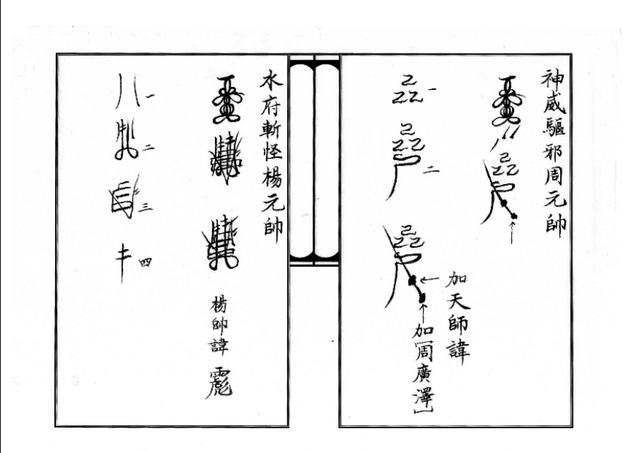 神威驅邪周元帥
一
二
加天師諱
加［周廣澤］
水府斬怪楊元帥
楊帥諱
一
二
三
四